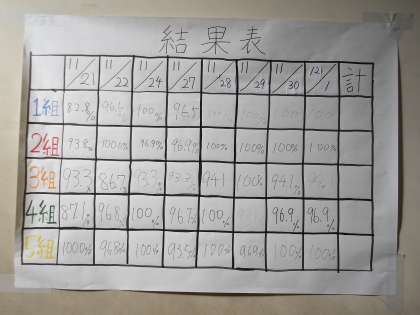 結果表
11/21 11/22 11/24 11/27 11/28 11/29 11/30 12/1 計
1組 82.8% 100%
2組 93.8% 100% 96.9% 96.9% 100% 100% 100% 100%
3組 93.3% 86.7 93.3% 93.3% 94.1 100% 94.1%
4組 87.1% 96.8% 100% 96.7% 100% 96.9% 96.9%
5組 100% 96.8% 100% 93.5% 100% 96.9% 100% 100%